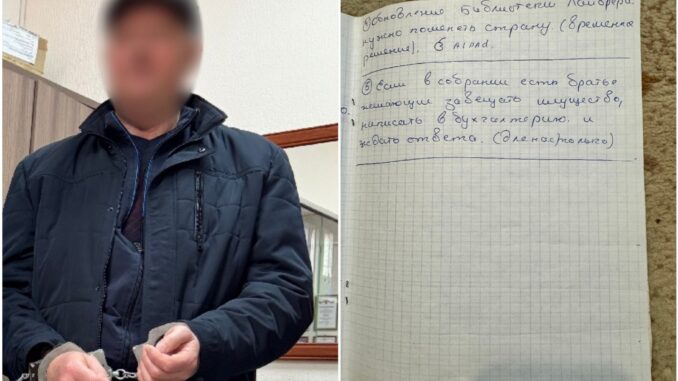 Обновление Библиотеки
нужно поменять страну (временное
решение).
⑤ Если в собрании есть братья
желающие завещать имущество,
написать в бухгалтерию. и
ждать ответа.